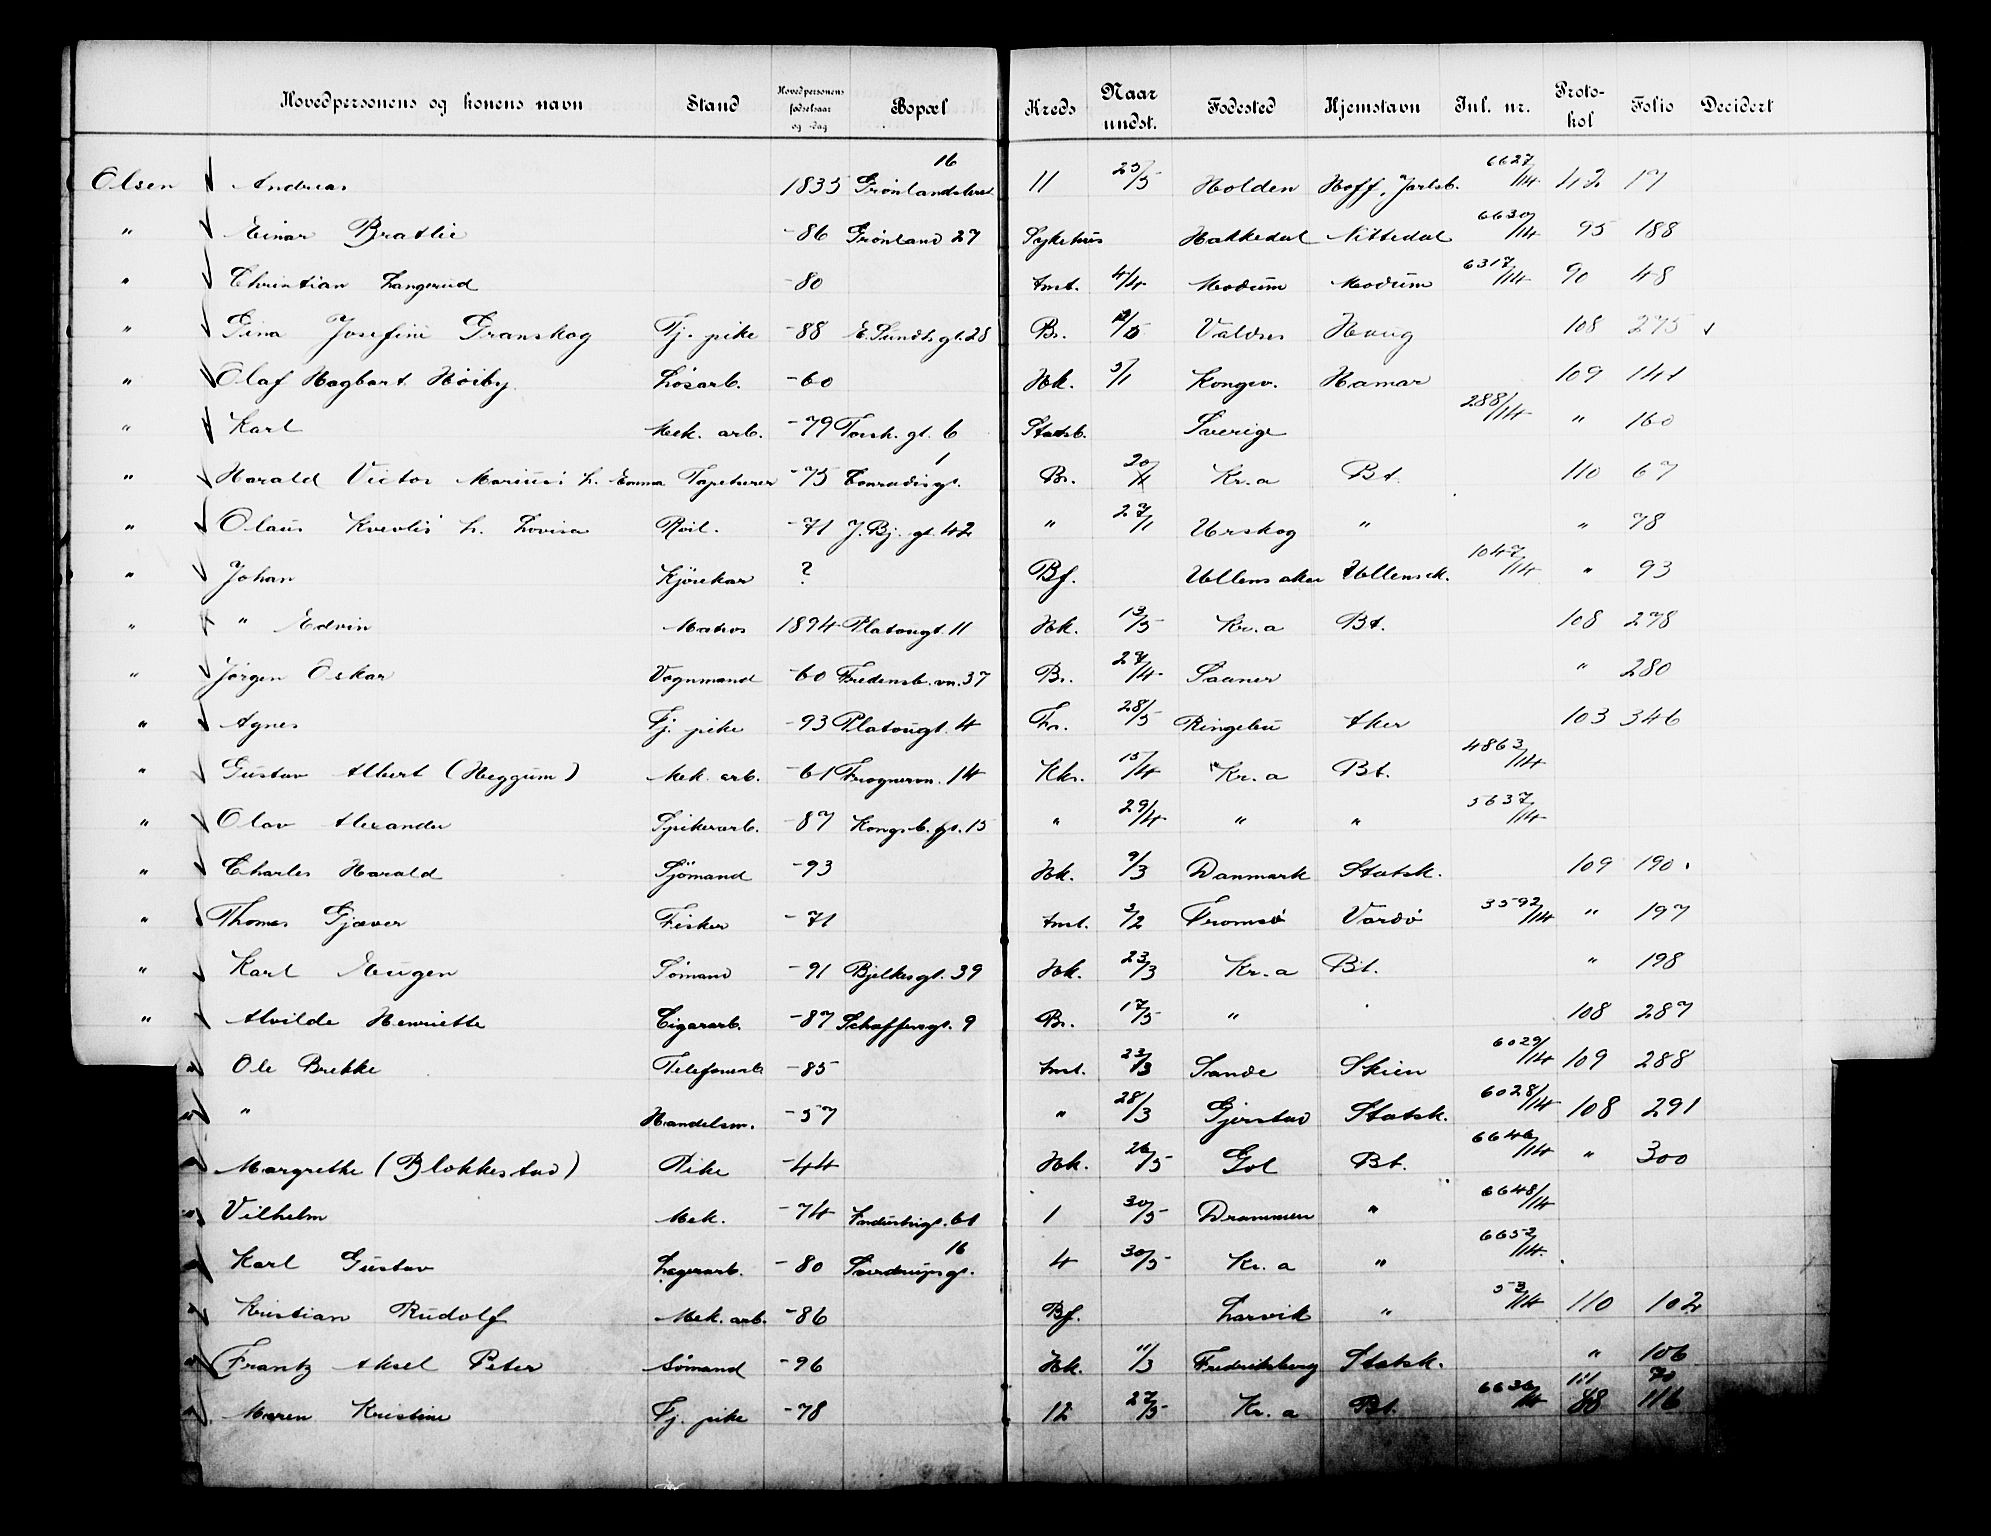 Hovedpersonens og konens navn Stand Hovedpersonens fødselsaar og -dag Bopæl Kreds Naar undst. Fødested Hjemstavn Inl. nr. Protokol Folio Decidert
Olsen Andreas 1835 Grønlandsleret 16 11 25/5 Holden Hoff, Jarlsb. 6627/14 42 17
" Einar Bratlie -86 Grønland 27 Sykehus Hakkedal Nittedal 6630/14 95 188
" Christian Langerud -80 Amt. 4/4 Modum Modum 6317/14 90 48
" Gina Josefine Granskog Tj. pike -88 E. Sundts gt. 28 Br. Valdres Haug 108 275
" Olaf Hagbart Høiby Løsarb. -60 Hk. 5/1 Kongsv. Hamar 109 141
" Karl Mek. arb. -79 Torsh. gt. 6 Statsb. Sverige 288/14 " 160
" Harald Victor Marius h. Emma Tapetserer -75 Conradis gt. 1 Br. 20/11 Kr.a Bt. 110 67
" Olaus Kvevlis h. Lovisa Røil. -71 J. Bj. gt. 42 " 27/1 Urskog " " 78
" Johan Kjørekar ? Bf. Ullensaker Ullensk. 1047/14 " 93
" " Edvin Matros 1894 Platougt. 11 Hk. 13/5 Kr.a Bt. 108 278
" Jørgen Oskar Vognmand -60 Fredensb. vn. 37 Br. 27/4 Saaner " 280
" Agnes Tj. pike -93 Platougt. 4 Fr. 28/5 Ringebu Aker 103 346
" Gustav Albert (Heggum) Mek. arb. -61 Frognervn. 14 Kk. 15/4 Kr.a Bt. 4863/14
" Olav Alexander Spikerarb. -87 Kongsb. gt. 15 " 29/4 " " 5637/14
" Charles Harald Sjømand -93 Hk. 9/3 Danmark Statsk. 109 190
" Thomas Gjæver Fisker -71 Amt. 2/2 Tromsø Vardø 3592/14 " 197
" Karl Eugen Sømand -91 Bjelkesgt. 39 Hk. 23/3 Kr.a Bt. " 198
" Alvilde Henriette Cigararb. -87 Schaffersgt. 9 Br. 17/5 " 108 287
" Ole Brekke Telefonarb -85 Amt. 23/3 Sande Skien 6029/14 109 288
" " Handelsm. -57 " 28/3 Gjerstad Statsk. 6028/14 108 291
" Margrethe (Blokkestad) Pike -44 Hk. 26/5 Gol Bt. 6646/14 " 300
" Vilhelm Mek. -74 Industrigt. 61 1 30/5 Drammen " 6648/14
" Karl Gustav Lagerarb. -80 Sverdrupsgt. 16 4 30/5 Kr.a " 6652/14
" Kristian Rudolf Mek. arb. -86 Bf. Larvik " 53/14 110 102
" Frantz Aksel Peter Sømand -96 Hk. 11/3 Fredriksberg Statsk. " 106
" Maren Kristine Tj. pike -78 12 27/5 Kr.a Bt. 6636/14 111 70
88 116